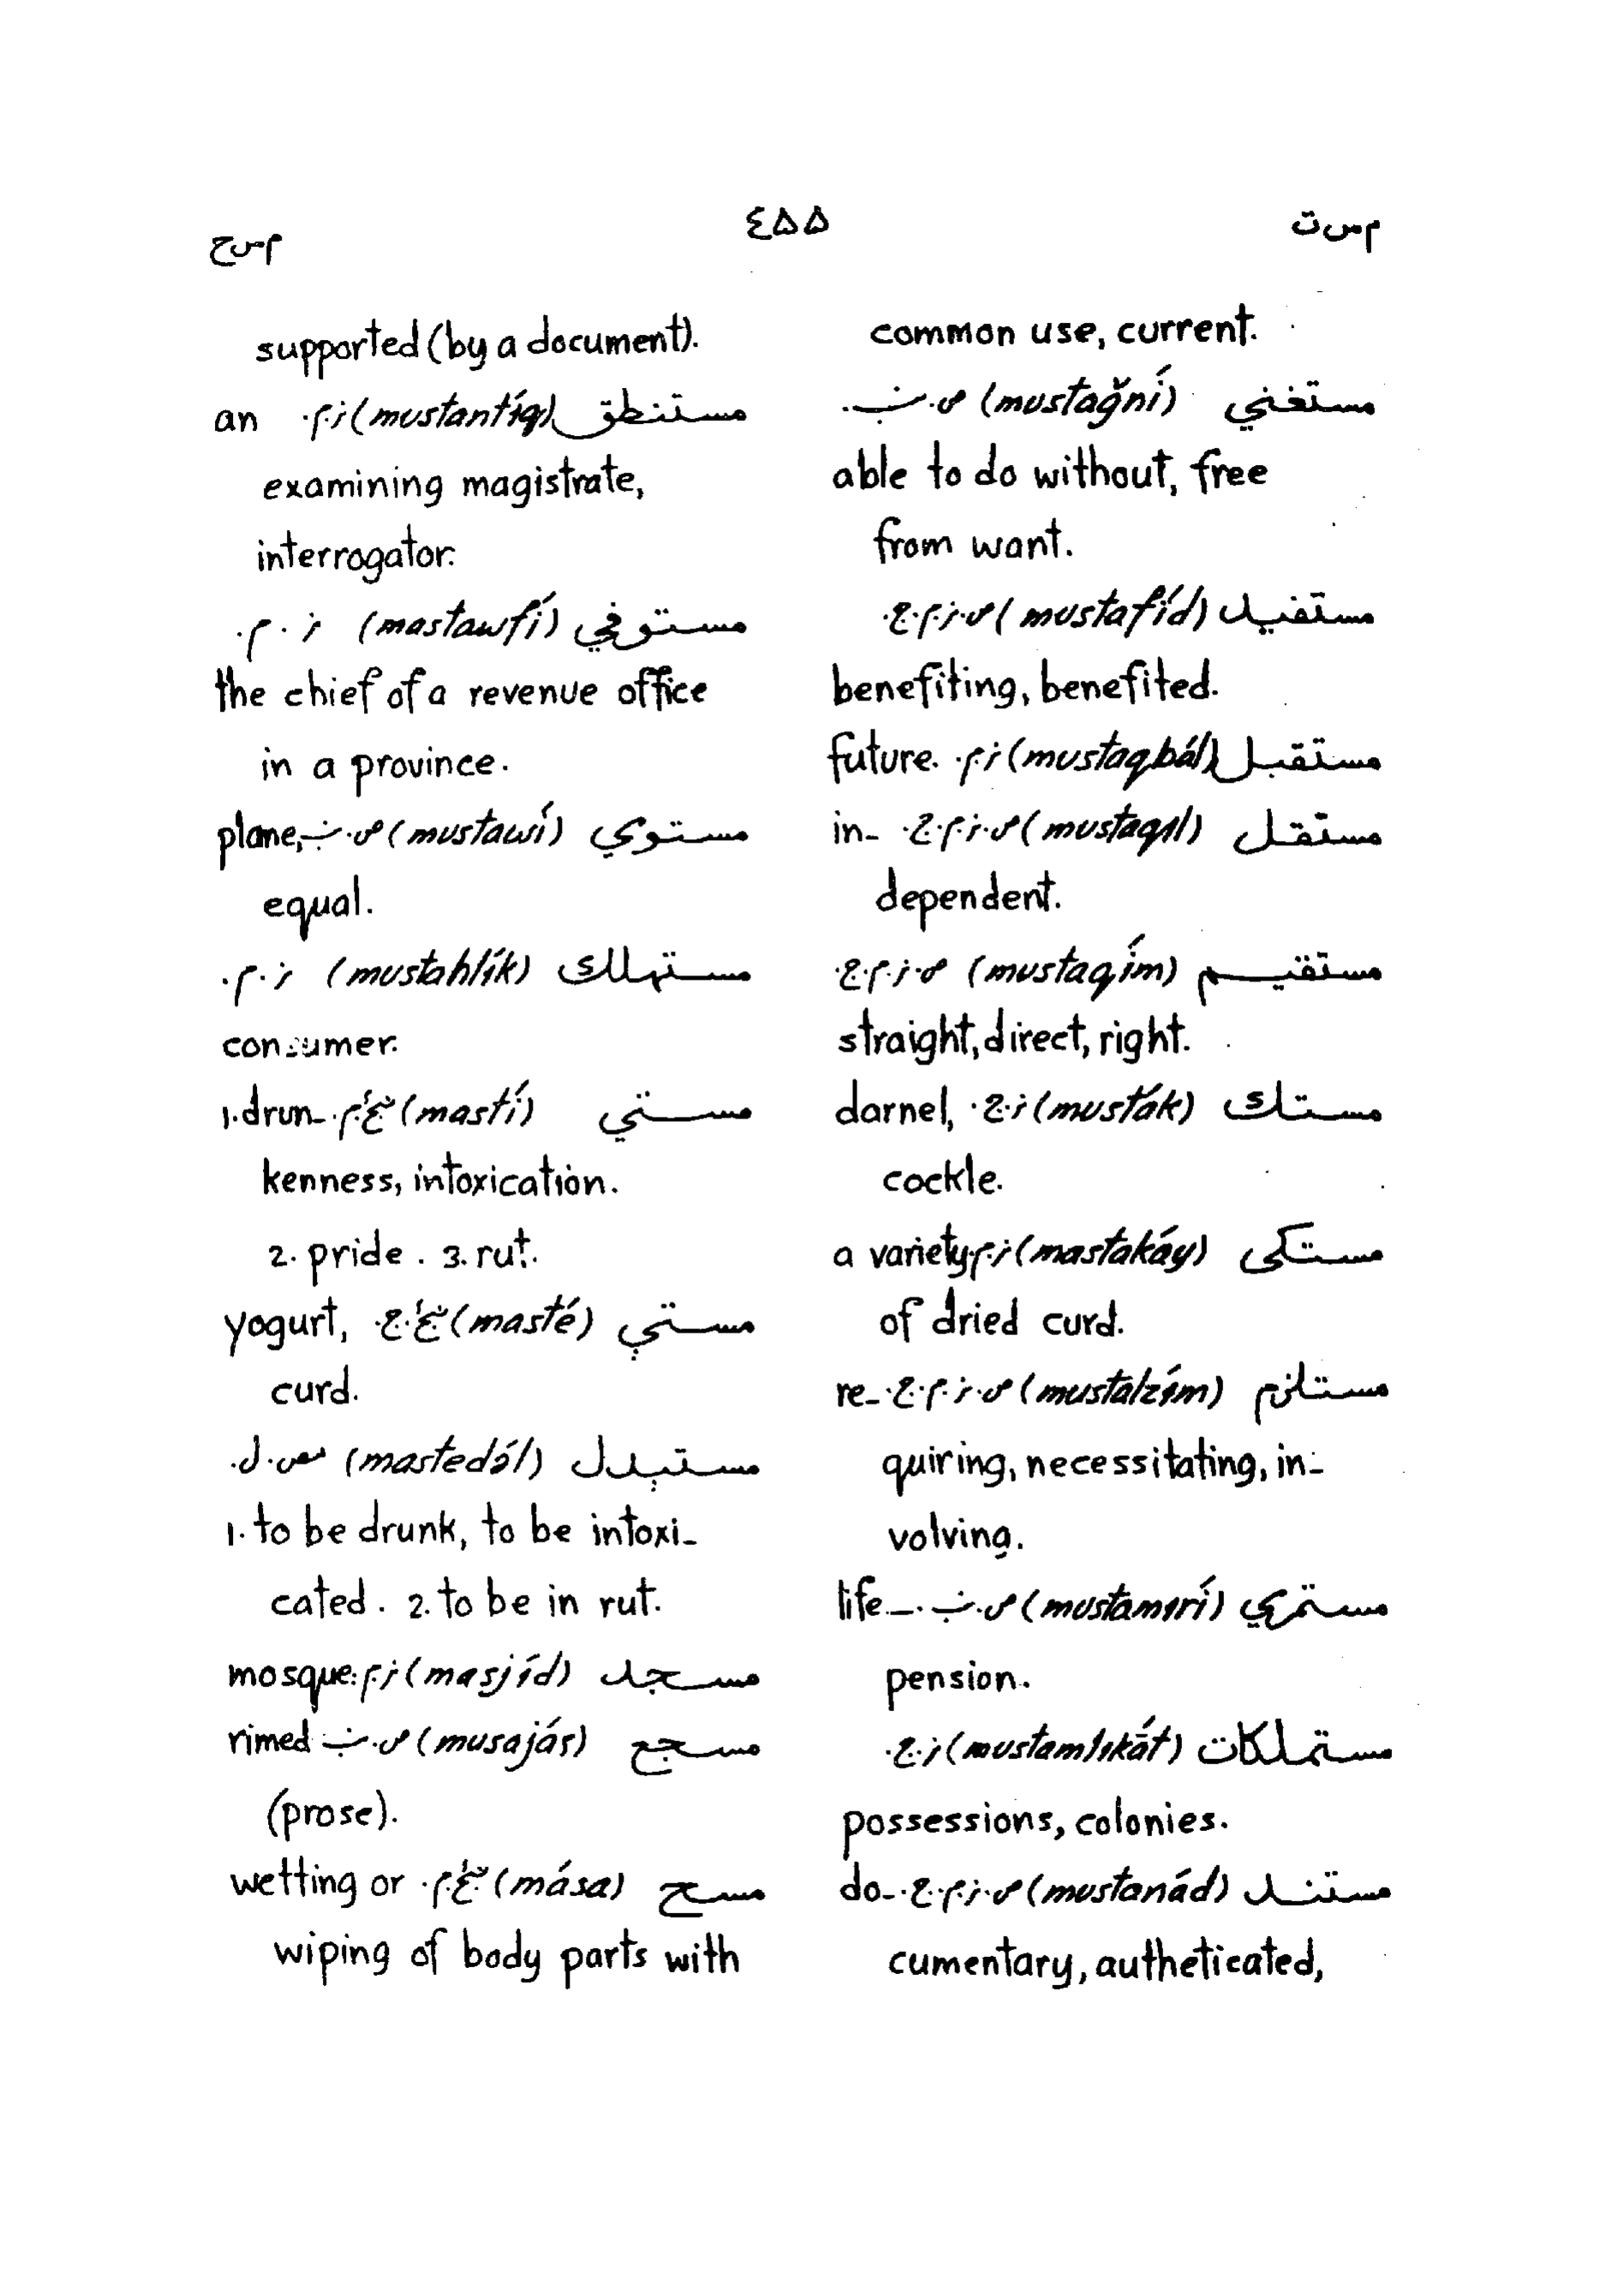 مست ٤۵۵ مسح
common use, current.
مستغني (mustağní) ص. ن.
able to do without, free
from want.
مستفيد (mustafíd) ص. ز. م. ج.
benefiting, benefited.
مستقبل (mustaqbál) ز. م. future.
مستقل (mustaqıl) ص. ز. م. ج. in-
dependent.
مستقيم (mustaqím) ص. ز. م. ج.
straight, direct, right.
مستك (musták) ز. ج. darnel,
cockle.
مستكى (mastakáy) ز. م. a variety
of dried curd.
مستلزم (mustalzím) ص. ز. م. ج. re-
quiring, necessitating, in-
volving.
مستمري (mustamırí) ص. ن. life-
pension.
مستملكات (mustamlıkāt) ز. ج.
possessions, colonies.
مستند (mustanád) ص. ز. م. ج. do-
cumentary, autheticated,
supported (by a document).
مستنطق (mustantíq) ز. م. an
examining magistrate,
interrogator.
مستوفي (mastawfí) ز. م.
the chief of a revenue office
in a province.
مستوي (mustawí) ص. ن. plane,
equal.
مستهلك (mustahlík) ز. م.
consumer.
مستي (mastí) م. 1. drun-
kenness, intoxication.
2. pride. 3. rut.
مستې (masté) ج. yogurt,
curd.
مستېدل (mastedə́l) ل.
1. to be drunk, to be intoxi-
cated. 2. to be in rut.
مسجد (masjíd) ز. م. mosque.
مسجع (musajás) ص. ن. rimed
(prose).
مسح (mása) م. wetting or
wiping of body parts with